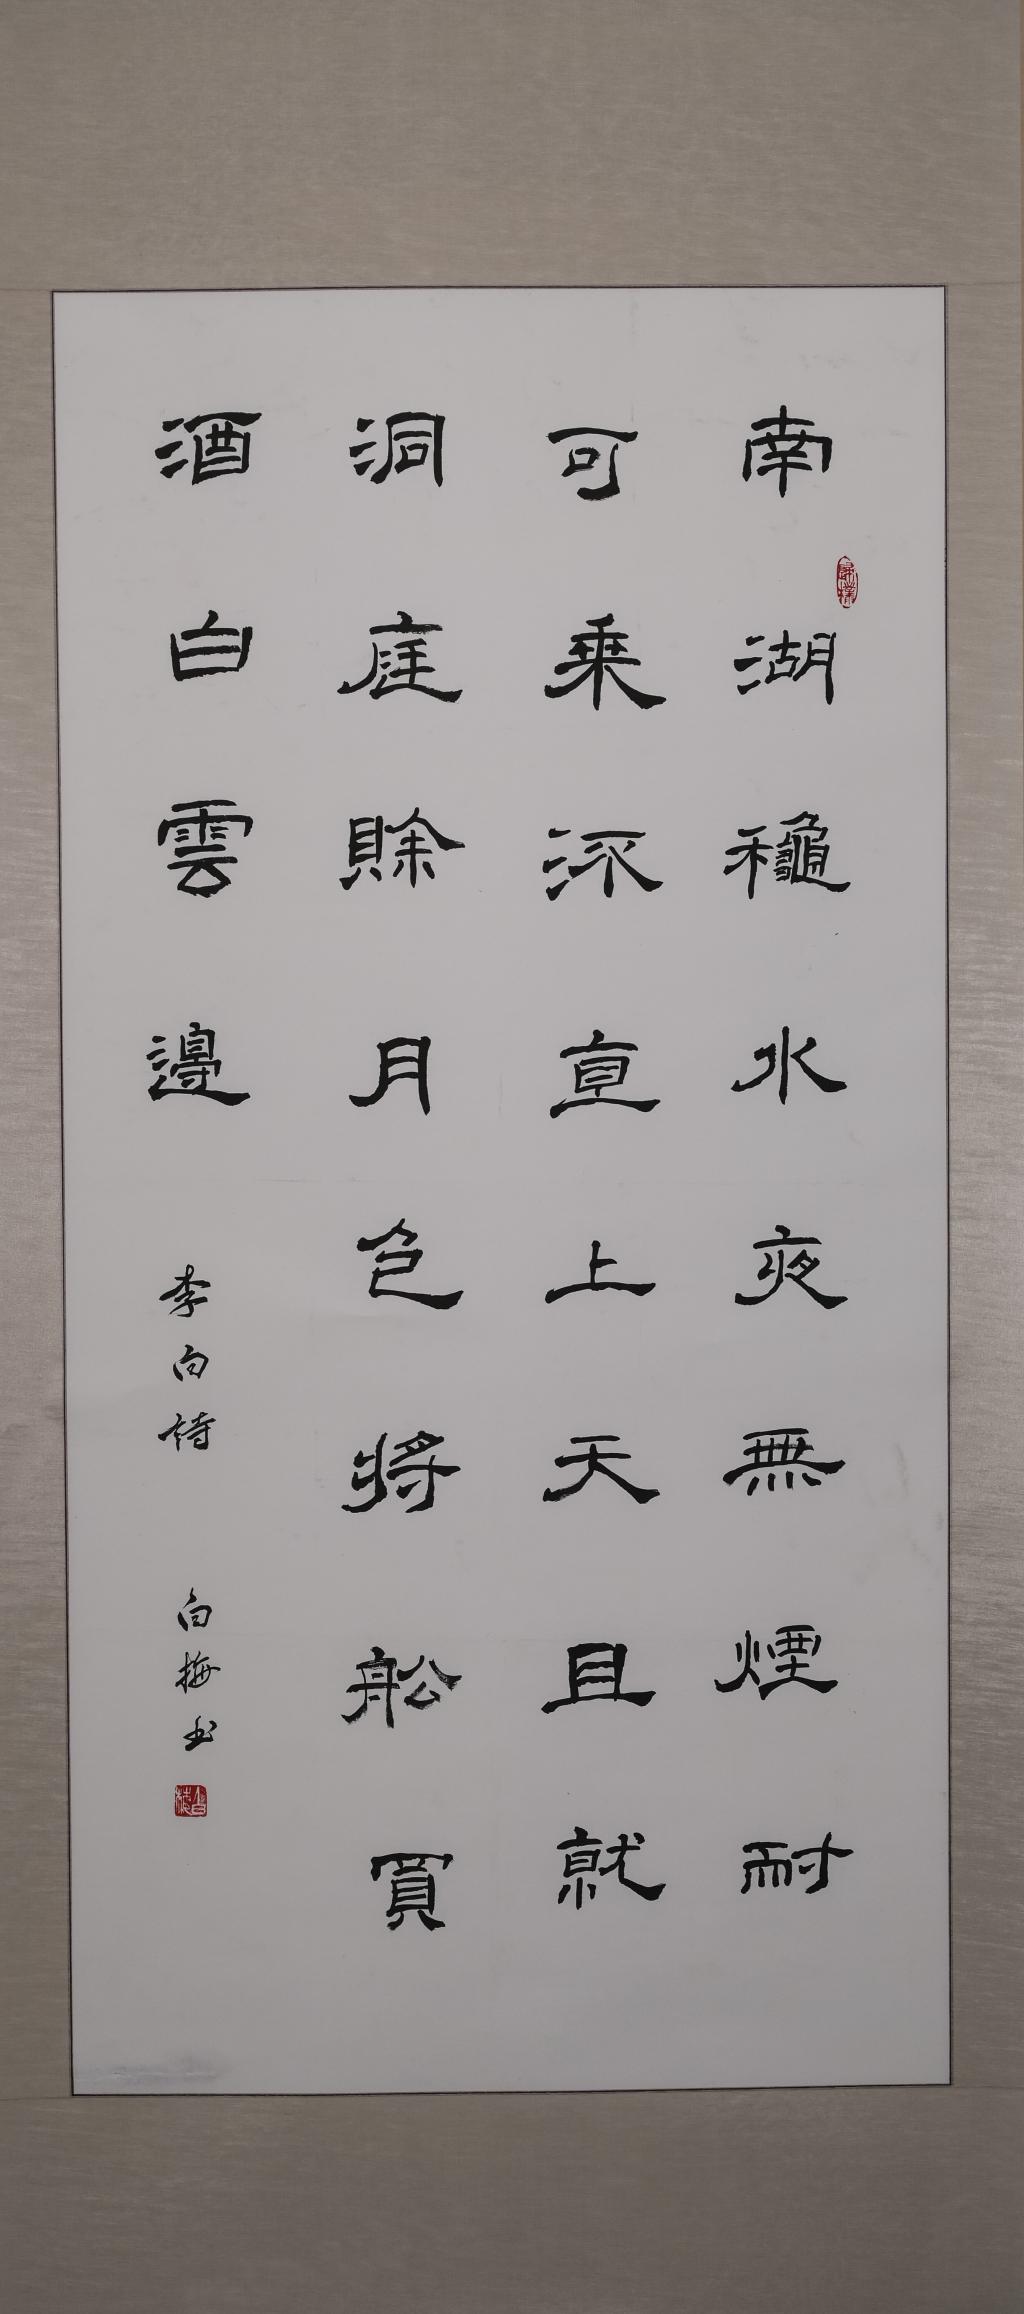 南湖龝水夜無煙耐
可乘流直上天且就
洞庭賖月色將舩買
酒白雲邊
李白詩
白梅书
歸樸
白梅